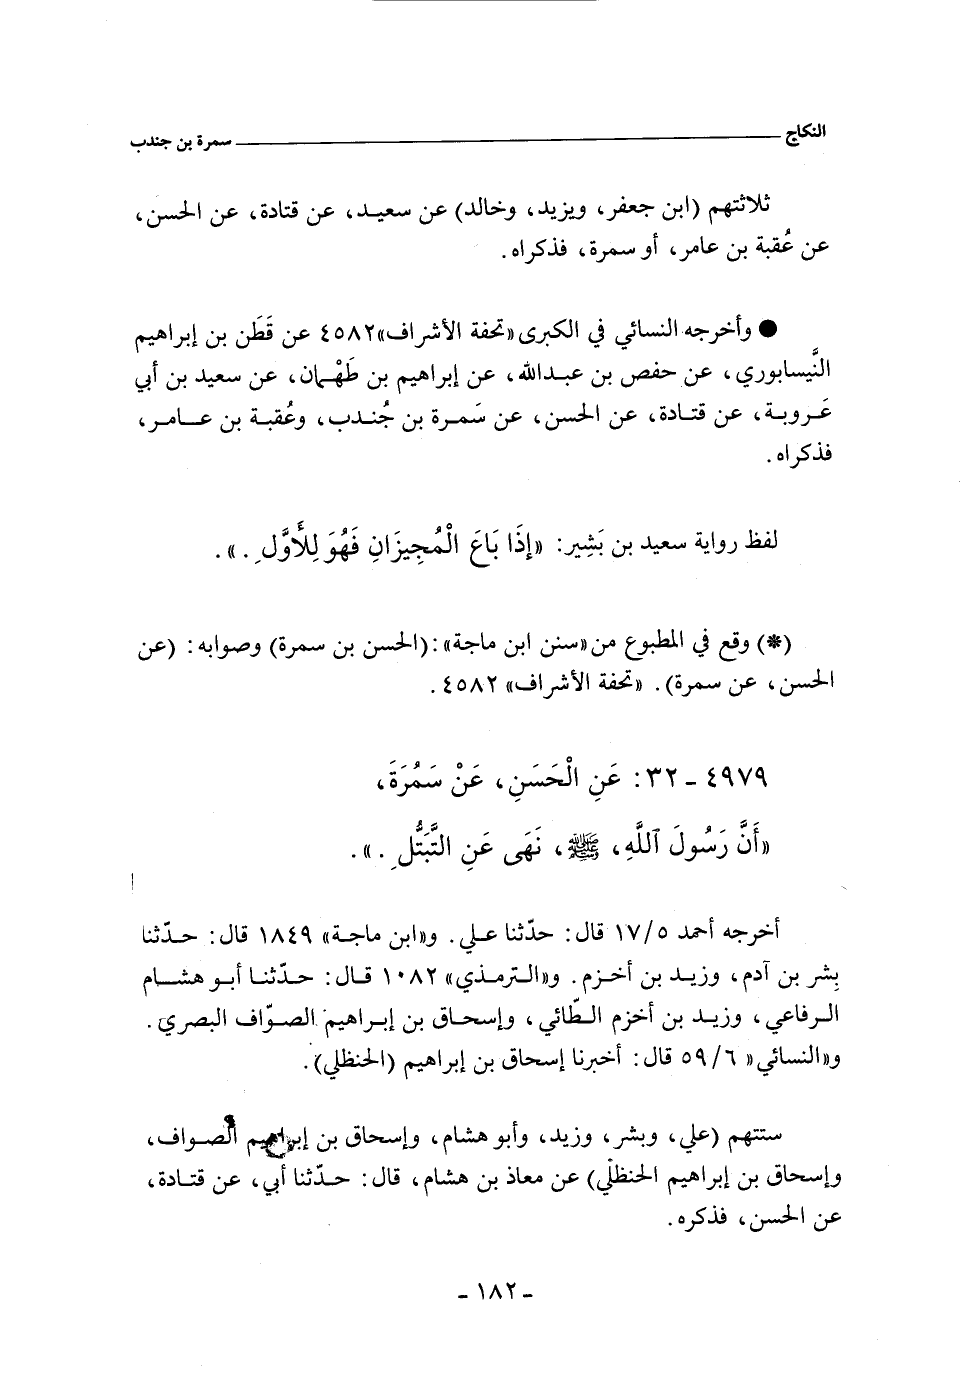 النكاح سمرة بن جندب
ثلاثتهم (ابن جعفر، ويزيد، وخالد) عن سعيد، عن قتادة، عن الحسن،
عن عُقبة بن عامر، أو سمرة، فذكراه.
● وأخرجه النسائي في الكبرى «تحفة الأشراف» ٤٥٨٢ عن قَطَن بن إبراهيم
النَّيسابوري، عن حفص بن عبدالله، عن إبراهيم بن طَهْمان، عن سعيد بن أبي
عَروبة، عن قتادة، عن الحسن، عن سَمرة بن جُندب، وعُقبة بن عامر،
فذكراه.
لفظ رواية سعيد بن بَشِير: «إذَا بَاعَ الْمُجِيزَانِ فَهُوَ لِلْأَوَّلِ.».
(*) وقع في المطبوع من «سنن ابن ماجة»: (الحسن بن سمرة) وصوابه: (عن
الحسن، عن سمرة). «تحفة الأشراف» ٤٥٨٢.
٤٩٧٩ - ٣٢: عَنِ الْحَسَنِ، عَنْ سَمُرَةَ،
«أَنَّ رَسُولَ ٱللَّهِ، ﷺ، نَهَى عَنِ التَّبَتُّلِ.».
أخرجه أحمد ١٧/٥ قال: حدّثنا علي. و«ابن ماجة» ١٨٤٩ قال: حدّثنا
بِشر بن آدم، وزيد بن أخزم. و«الترمذي» ١٠٨٢ قال: حدّثنا أبو هشام
الرفاعي، وزيد بن أخزم الطّائي، وإسحاق بن إبراهيم الصوّاف البصري.
و«النسائي» ٥٩/٦ قال: أخبرنا إسحاق بن إبراهيم (الحنظلي).
ستتهم (علي، وبشر، وزيد، وأبو هشام، وإسحاق بن إبراهيم الصواف،
وإسحاق بن إبراهيم الحنظلي) عن معاذ بن هشام، قال: حدّثنا أبي، عن قتادة،
عن الحسن، فذكره.
- ١٨٢ -